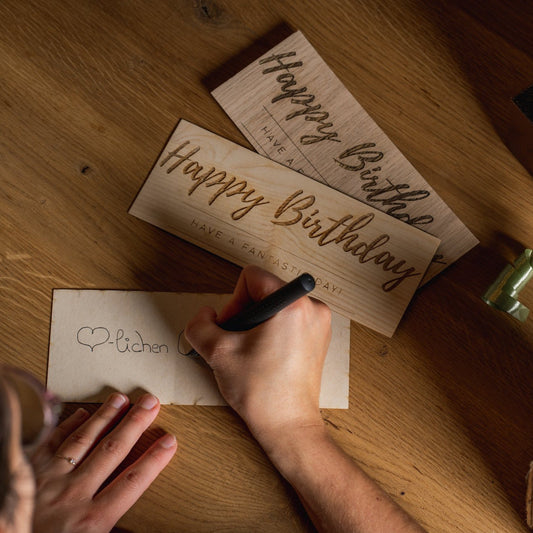 Happy Birthday
HAVE A
Happy Birthday
HAVE A FANTASTIC DAY!
♡-lichen